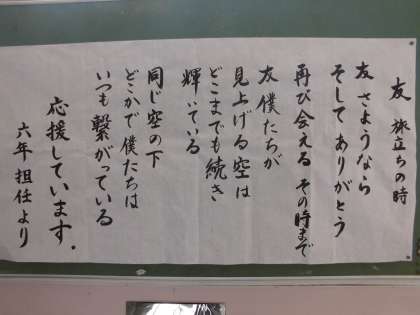 友 旅立ちの時
友 さようなら
そして ありがとう
再び会える その時まで
友 僕たちが
見上げる空は
どこまでも続き
輝いている
同じ空の下
どこかで僕たちは
いつも繋がっている
応援しています.
六年 担任より